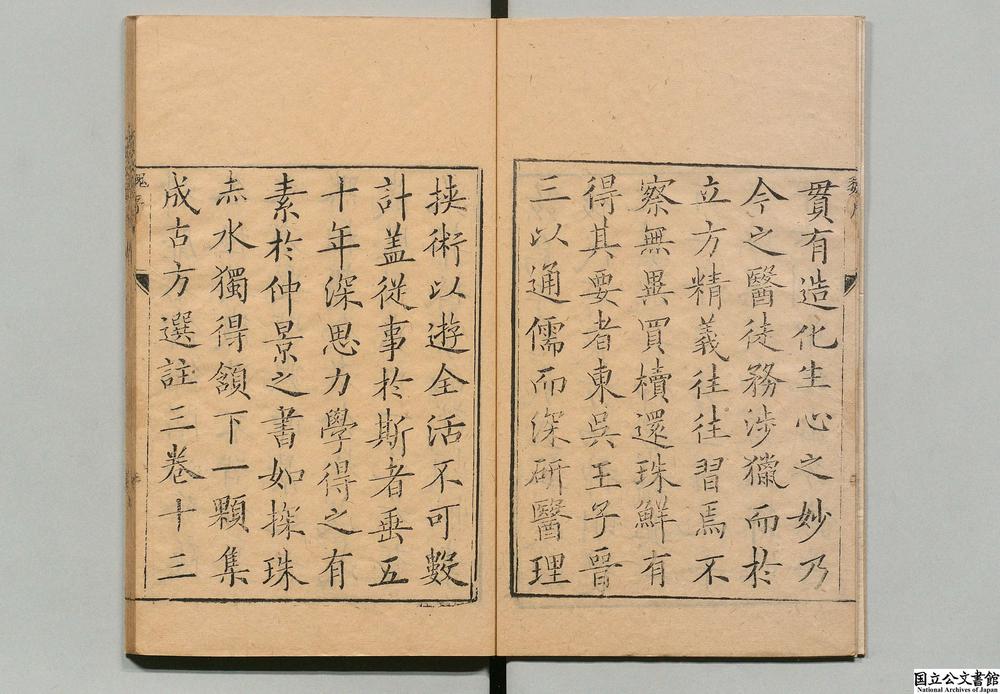 貫有造化生心之妙乃
今之醫徒務涉獵而於
立方精義往往習焉不
察無異買櫝還珠鮮有
得其要者東吳王子晉
三以通儒而深研醫理
挟術以遊全活不可數
計蓋從事於斯者垂五
十年深思力學得之有
素於仲景之書如探珠
赤水獨得頷下一顆集
成古方選註三卷十三
国立公文書館
National Archives of Japan